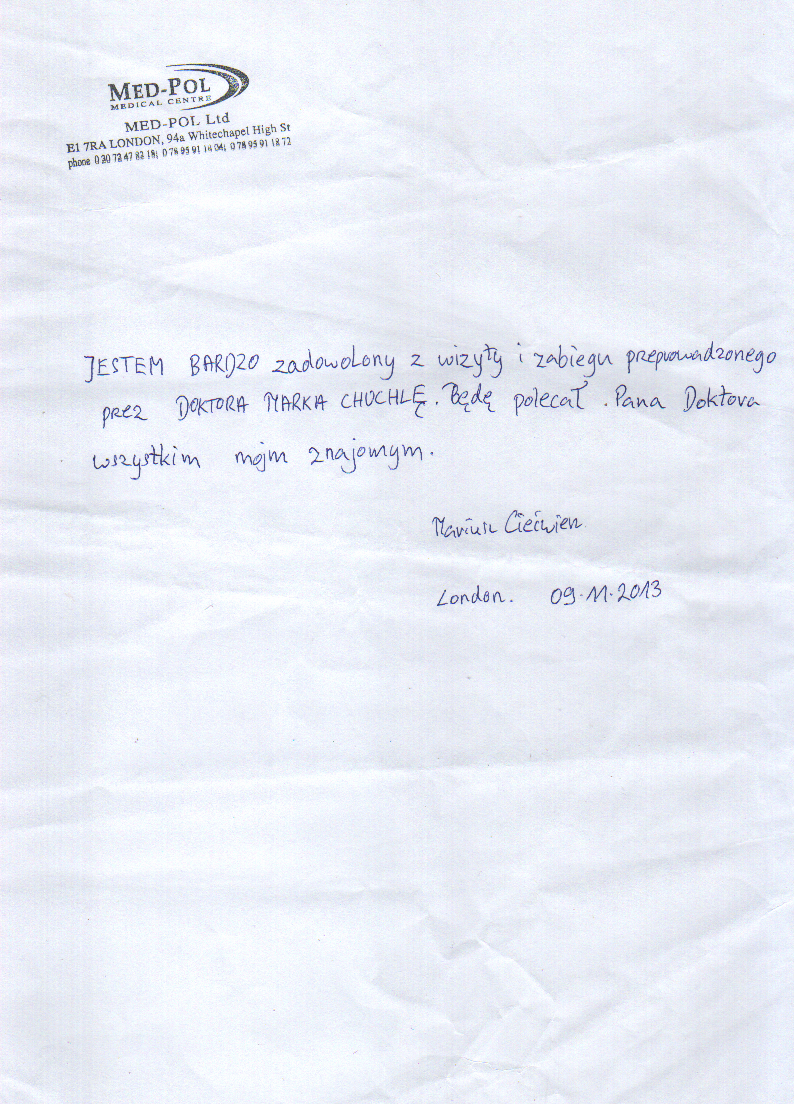 MED-POL
MEDICAL CENTRE
MED-POL Ltd
E1 7RA LONDON, 94a Whitechapel High St
phone 0 20 72 47 82 18; 0 78 95 91 14 04; 0 78 95 91 18 72
JESTEM BARDZO zadowolony z wizyty i zabiegu przeprowadzonego
prez DOKTORA MARKA CHUCHLĘ. Będę polecał . Pana Doktora
wszystkim mojm znajomym.
Mariusz
London. 09.11.2013